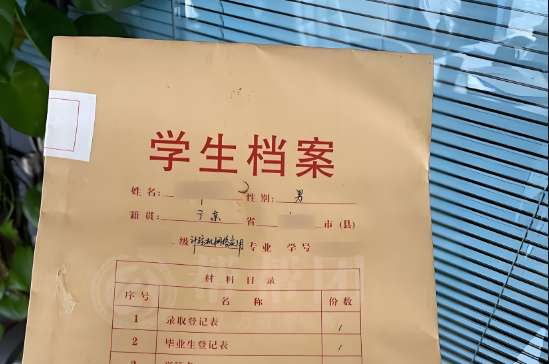 学生档案
姓名: 性别: 男
籍贯: 广东 省 市(县)
级 计算机网络应用 专业 学号
材料目录
序号 名称 份数
1 录取登记表 1
2 毕业生登记表 1